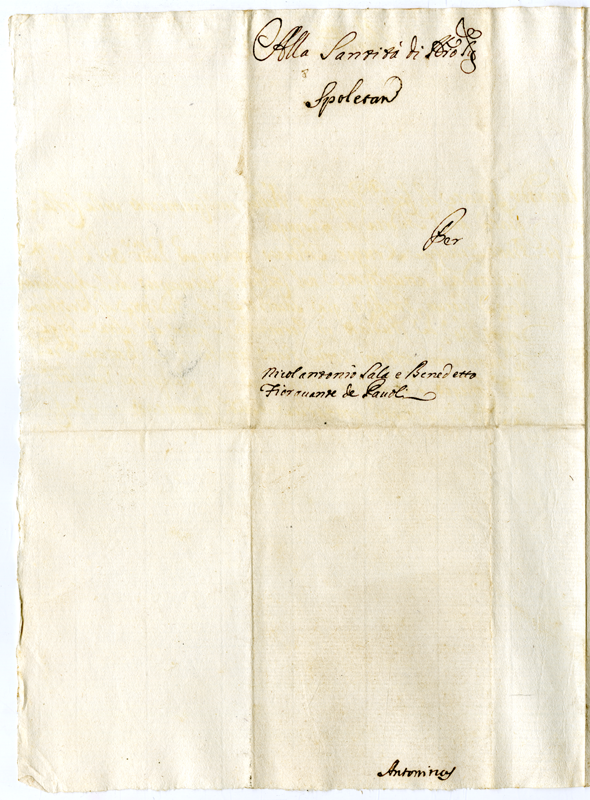 Alla Santità di Nro Sig.re
Spoletan
Per
Nicolantonio Sala e Benedetto
Fioravante de Pavoli
Antoninus